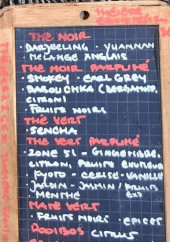 THÉ NOIR
• DARJEELING • YUANNAN
• MÉLANGE ANGLAIS
THÉ NOIR PARFUMÉ
• SMOKEY • EARL GREY
• BABOUCHKA (BERGAMOTE,
CITRON)
• FRUITS NOIRS
THÉ VERT
• SENCHA
THÉ VERT PARFUMÉ
• ZONE 51 - GINGEMBRE,
CITRON, FRUITS
• KYOTO - CERISE - VANILLE
• JARDIN - JASMIN / FRUITS
• MENTHE
MATÉ VERT
• FRUITS NOIRS • EPICES
ROOIBOS CITRUS